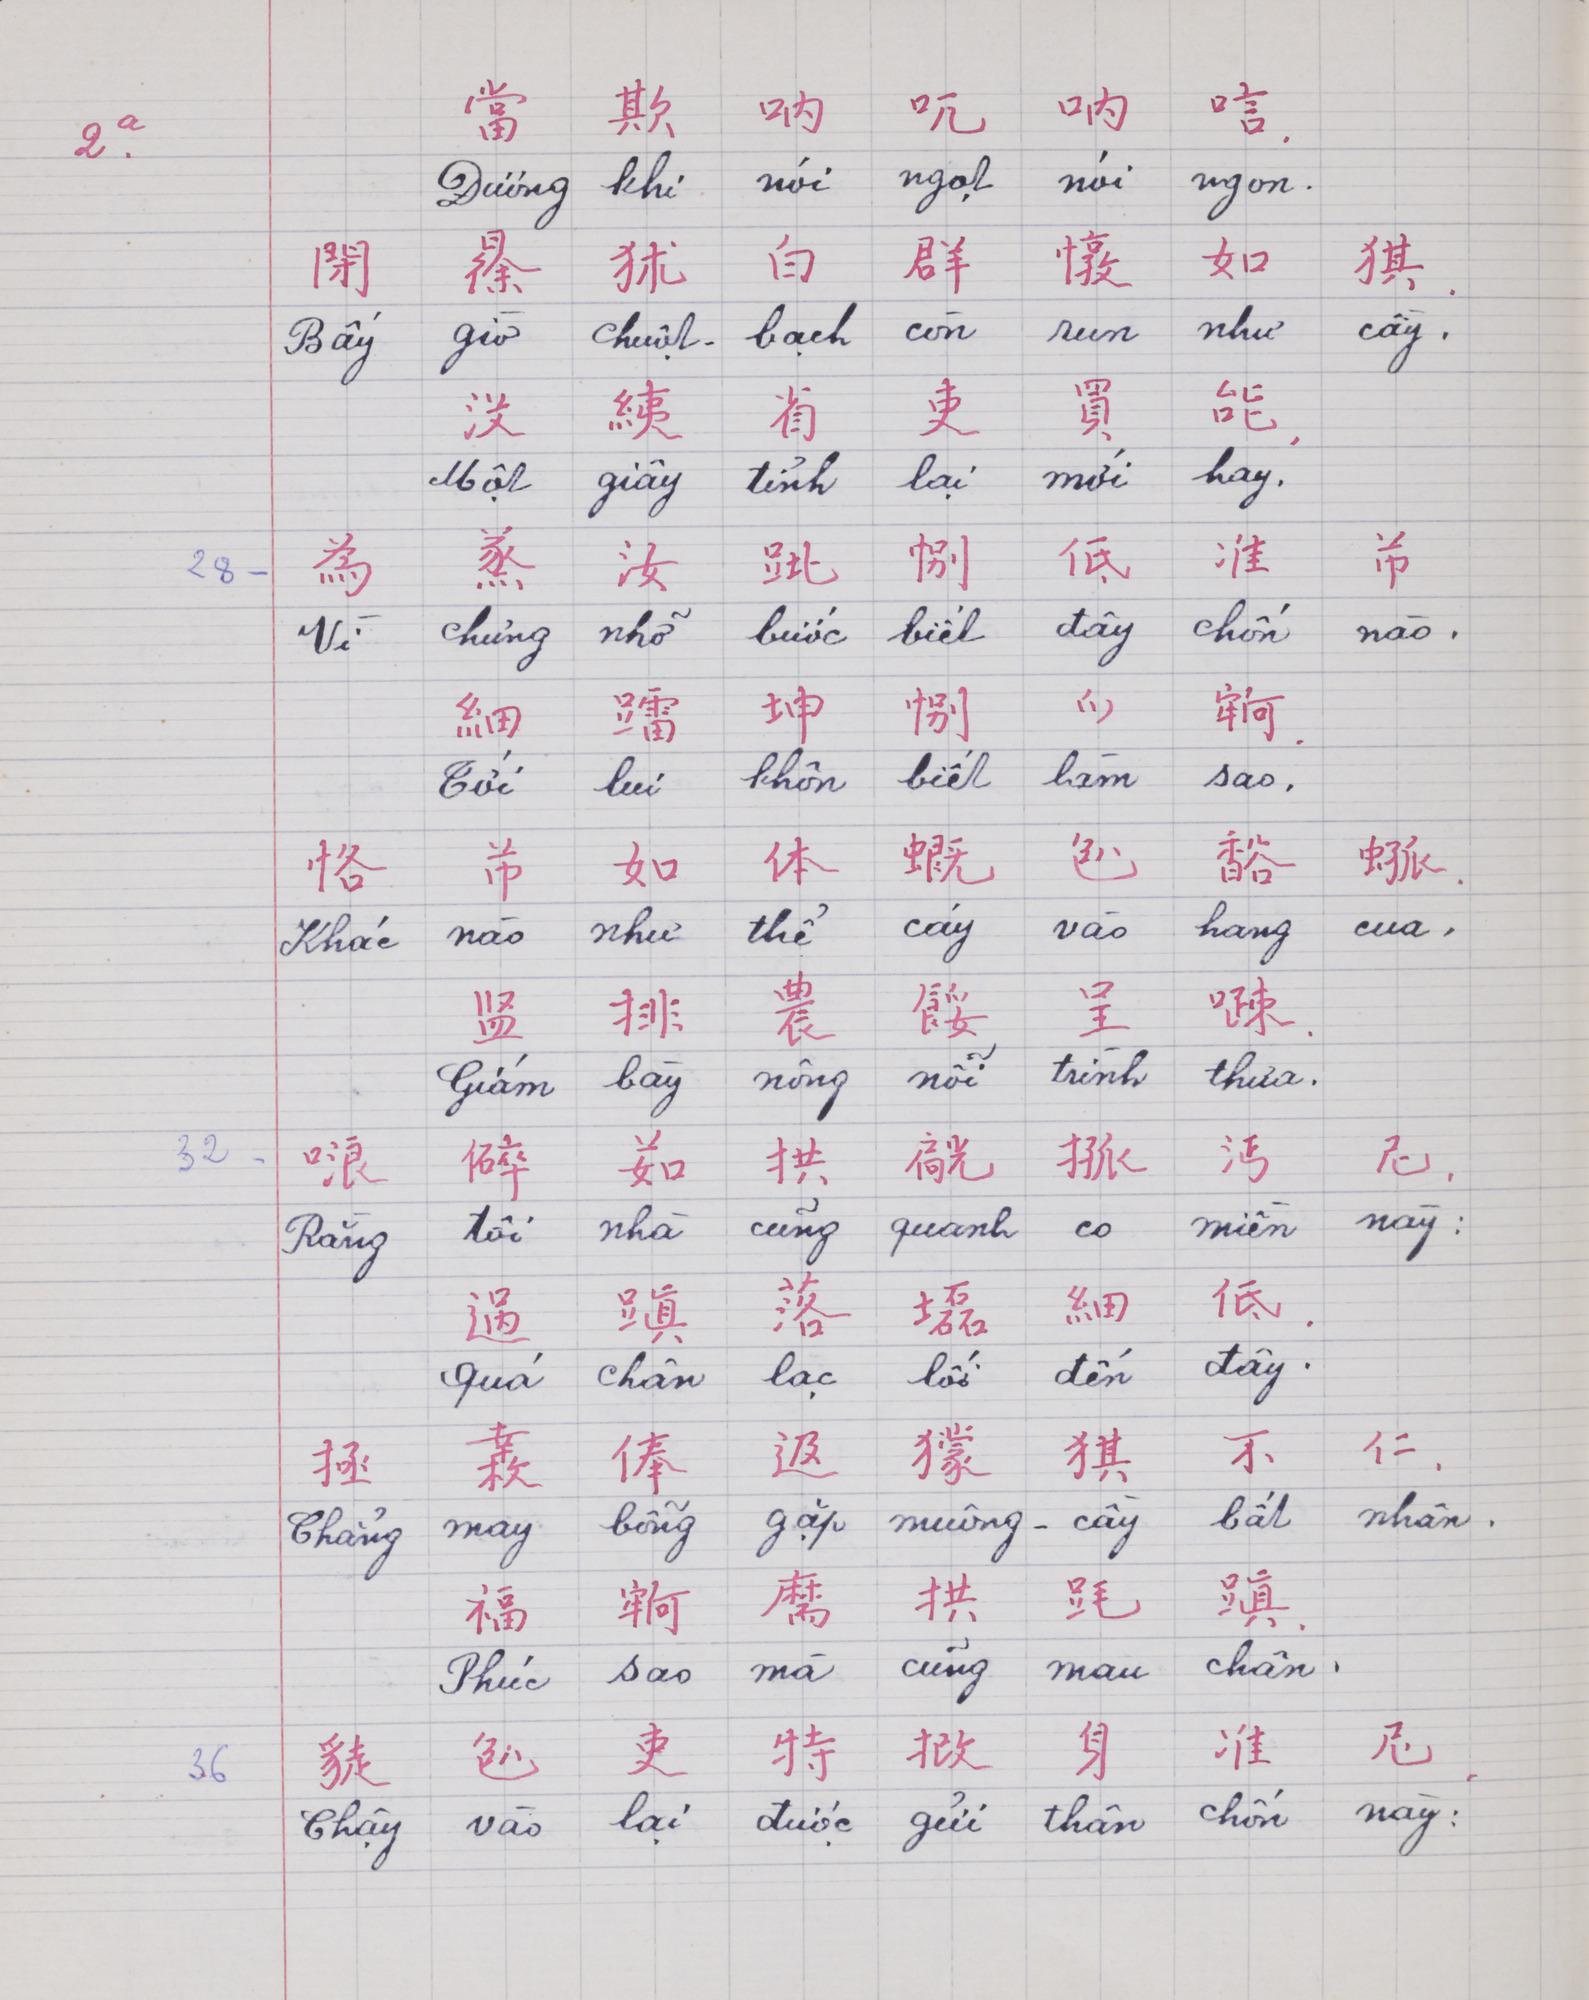 2ª.
當 欺 吶 𠯪 吶 唁.
Đương khi nói ngọt nói ngon.
𣋽 㹥 白 群 如 猉.
Bấy giờ chuột-bạch còn run như cầy.
沒 省 吏 買 能.
Một giây tỉnh lại mới hay.
28- 為 蒸 汝 𨀈 別 低 准 芇
Vì chưng nhỡ bước biết đây chốn nào.
細 𨆢 坤 別 牢.
Tới lui khôn biết làm sao.
恪 芇 如 体 𧍆 𠓨 𧯶.
Khác nào như thể cáy vào hang cua.
監 排 農 餒 呈 𠽔.
Giám bày nông nỗi trình thưa.
32- 哴 碎 茹 拱 沔 尼.
Rằng tôi nhà cũng quanh co miền này:
過 蹎 落 𡓃 細 低.
Quá chân lạc lối đến đây.
拯 俸 㺠 猉 不 仁.
Chẳng may bỗng gặp muông-cầy bất nhân.
福 牢 麿 拱 蹎.
Phúc sao mà cũng mau chân.
36 𠓨 吏 特 改 身 准 尼.
Chạy vào lại được gửi thân chốn này: